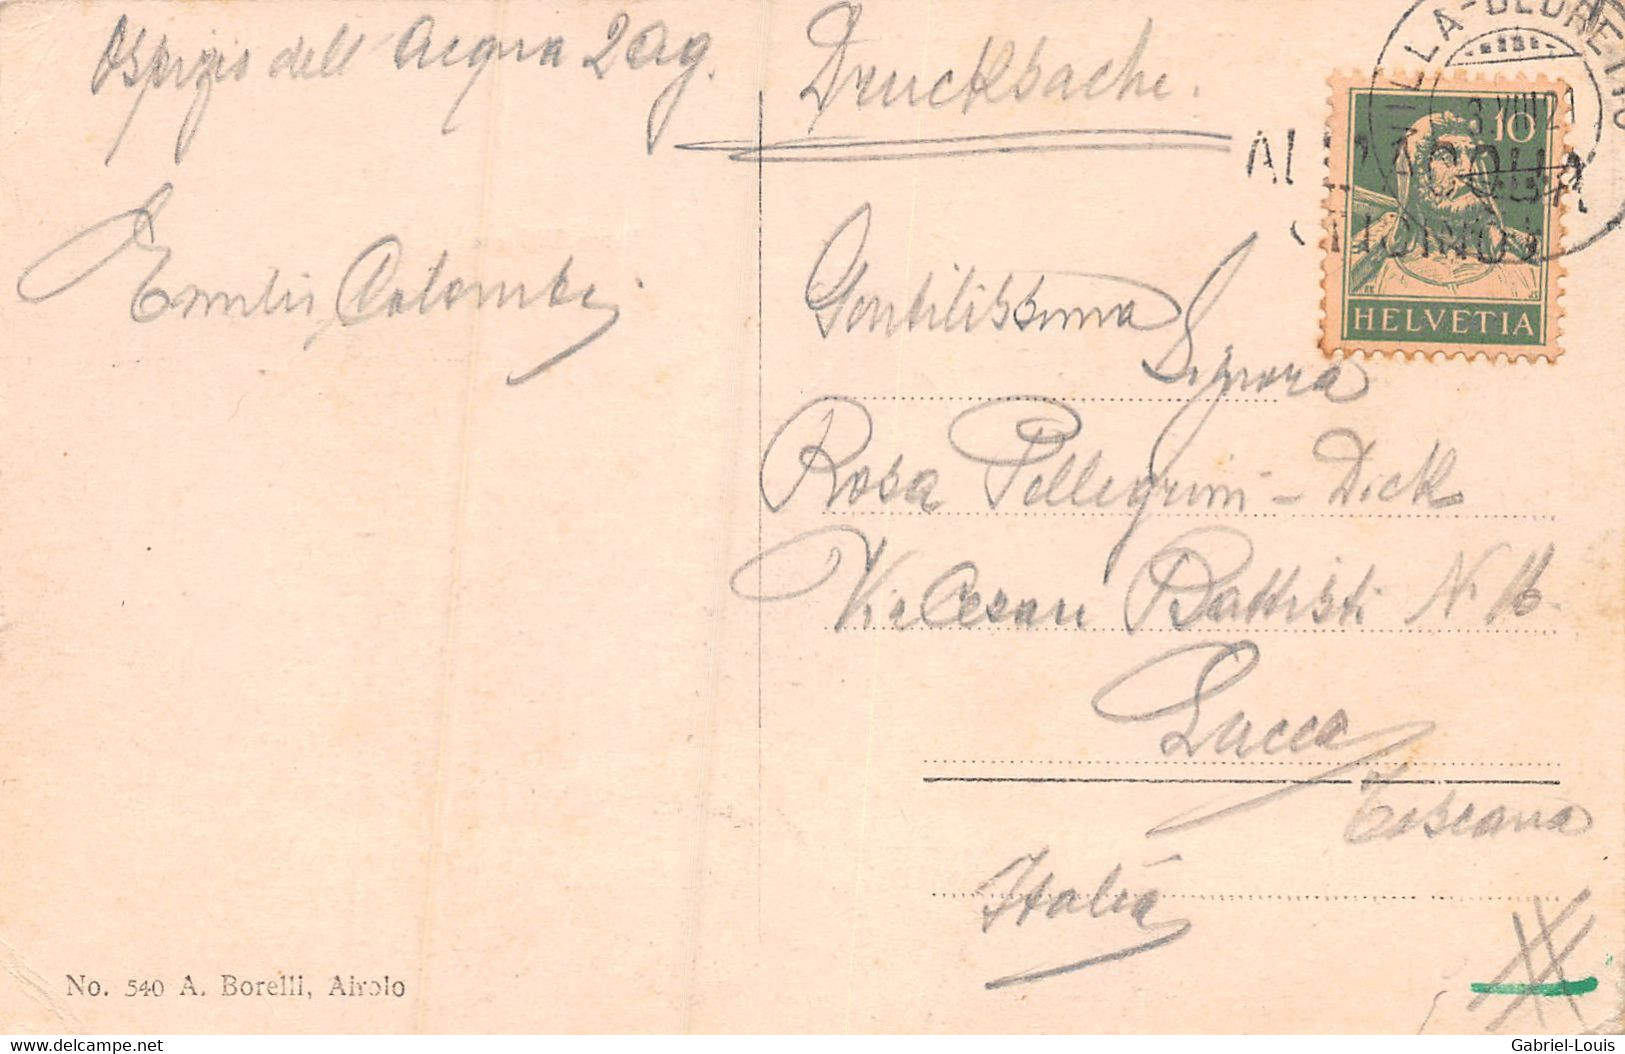 Ospizio dell' Acqua 2 Ag.
Drucksache.
Emilio Colombi
10
VILLA-BEDRETTO
3. VIII 21
ACQUA
HELVETIA
Gentilissima
Signora
Rosa Pellegrini - Dick
Via Cesare Battisti N. 16.
Lucca
Toscana
Italia
No. 540 A. Borelli, Airolo
delcampe.net
Gabriel-Louis